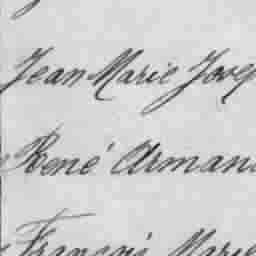 Jean Marie Josep
René Armand
François Marie